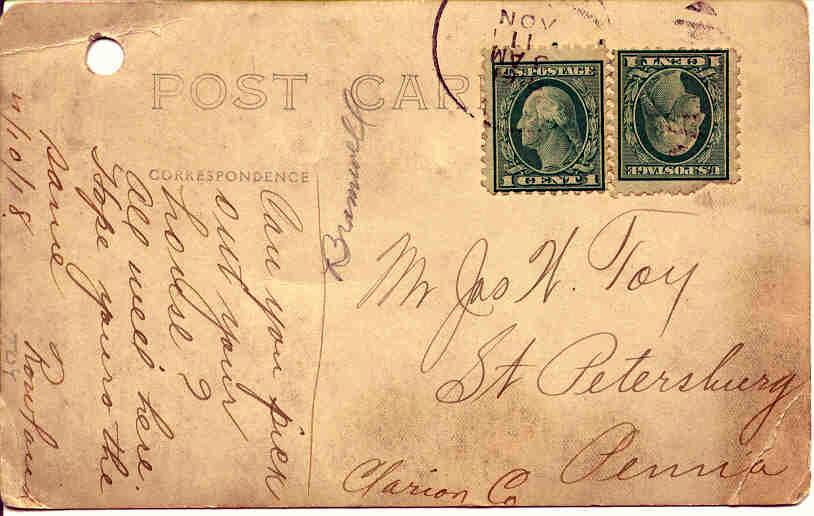 NOV
11
AM
U.S. POSTAGE
1 CENT 1
1 CENT 1
U.S. POSTAGE
POST CAR
CORRESPONDENCE
Can you pick
out your
house?
All well here.
Hope yours the
same
11/10/18
TOY
Mr Jas H. Toy
St Petersburg
Penna
Clarion Co